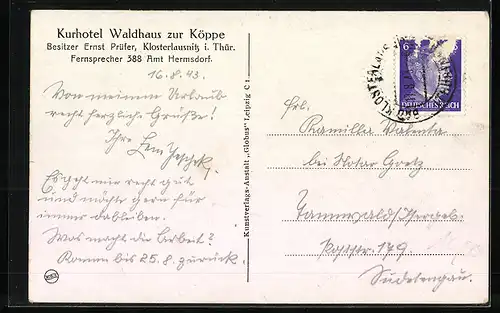 Kurhotel Waldhaus zur Köppe
Besitzer Ernst Prüfer, Klosterlausnitz i. Thür.
Fernsprecher 388 Amt Hermsdorf.
16.8.43.
Von meinem Urlaub
recht herzliche Grüße!
Ihre
Es geht mir recht gut
und möchte gern für
immer dableiben.
Was macht die Arbeit?
Komme bis 25.8. zurück.
Kunstverlags-Anstalt „Globus" Leipzig C 1
6
DEUTSCHES REICH
BAD KLOSTERLAUSNITZ
Frl.
Kamilla Walenta
bei Notar Goetz
Tannwald/Isergeb.
Poststr. 179.
Sudetengau.